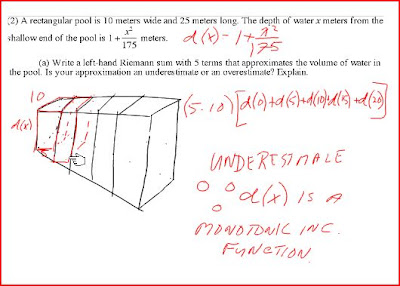 (2) A rectangular pool is 10 meters wide and 25 meters long. The depth of water x meters from the
shallow end of the pool is 1 + x²/175 meters. d(x) = 1 + x²/175
(a) Write a left-hand Riemann sum with 5 terms that approximates the volume of water in
the pool. Is your approximation an underestimate or an overestimate? Explain.
10
d(x)
(5·10) [d(0)+d(5)+d(10)+d(15)+d(20)]
UNDERESTIMATE
∴ d(x) IS A
MONOTONIC INC.
FUNCTION.